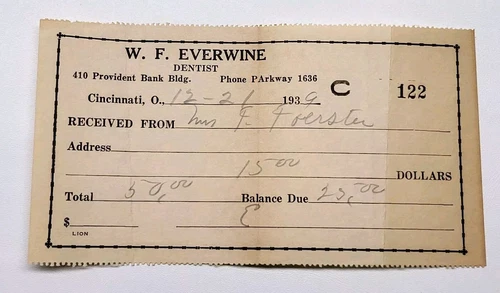 W. F. EVERWINE
DENTIST
410 Provident Bank Bldg. Phone PArkway 1636
Cincinnati, O., 12-21 1939 C 122
RECEIVED FROM Mrs F. Foerster
Address
15 00 DOLLARS
Total 50,00 Balance Due 25,00
$ E
LION